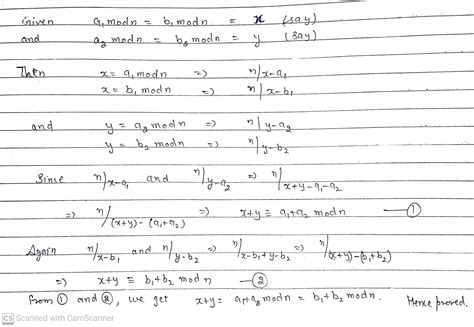 Given a₁ mod n = b₁ mod n = x (say)
and a₂ mod n = b₂ mod n = y (say)
Then x = a₁ mod n => n/x-a₁
x = b₁ mod n => n/x-b₁
and y = a₂ mod n => n/y-a₂
y = b₂ mod n => n/y-b₂
Since n/x-a₁ and n/y-a₂ => n/x+y-a₁-a₂
=> n/(x+y)-(a₁+a₂) => x+y ≡ a₁+a₂ mod n —①
Again n/x-b₁ and n/y-b₂ => n/x-b₁+y-b₂ => n/(x+y)-(b₁+b₂)
=> x+y ≡ b₁+b₂ mod n —②
from ① and ②, we get x+y = a₁+a₂ mod n = b₁+b₂ mod n. Hence proved.
CS Scanned with CamScanner